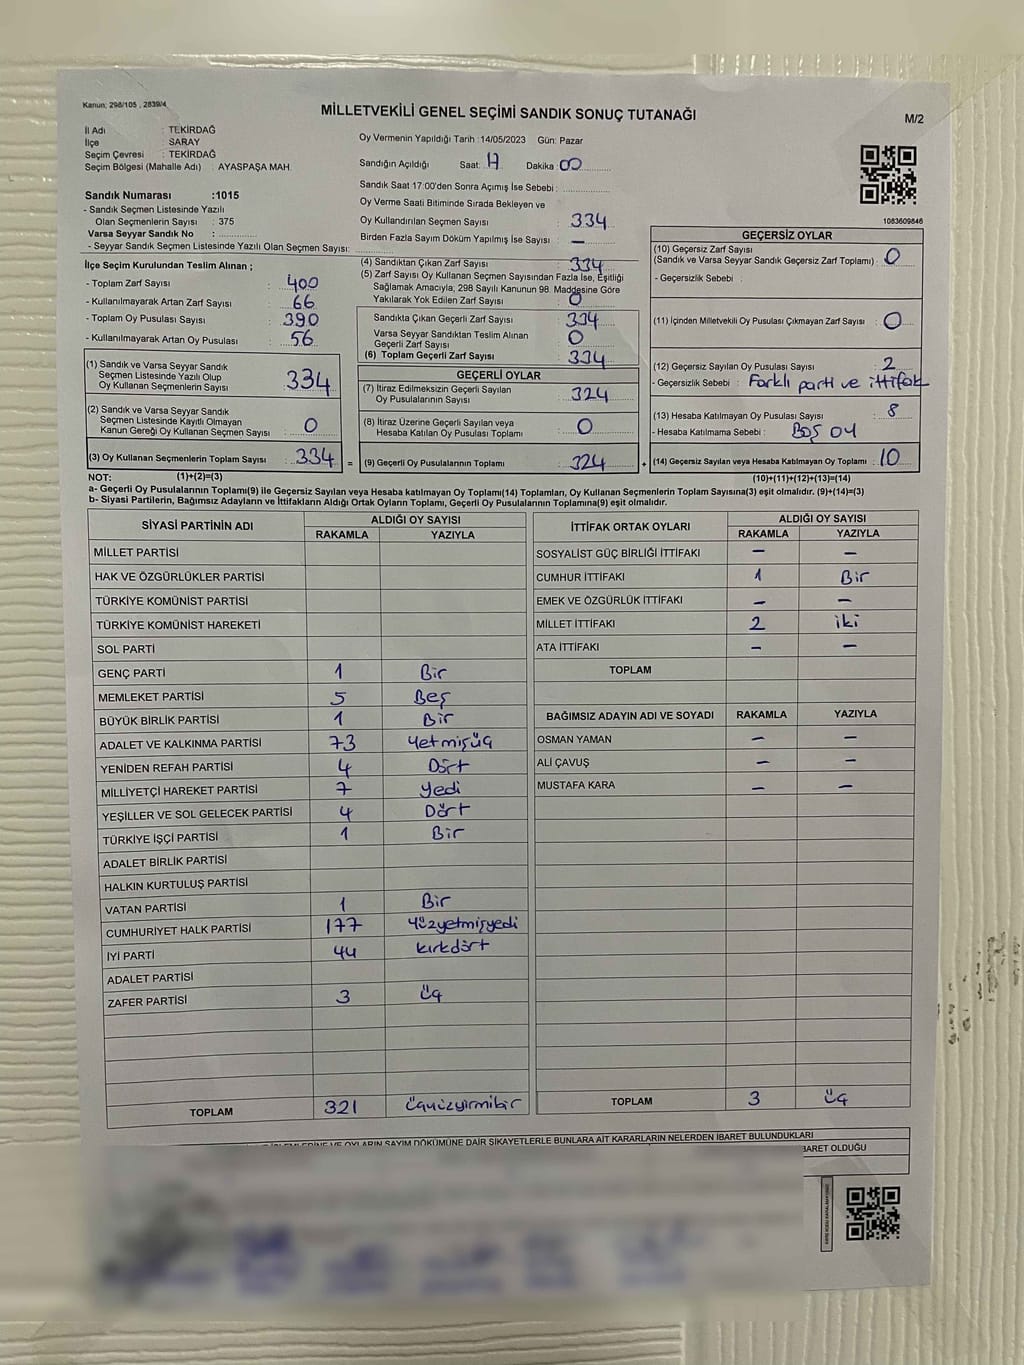 Kanun; 298/105 , 2839/4
MİLLETVEKİLİ GENEL SEÇİMİ SANDIK SONUÇ TUTANAĞI
M/2
İl Adı : TEKİRDAĞ
İlçe SARAY
Seçim Çevresi : TEKİRDAĞ
Seçim Bölgesi (Mahalle Adı) : AYASPAŞA MAH.
Sandık Numarası :1015
- Sandık Seçmen Listesinde Yazılı
Olan Seçmenlerin Sayısı : 375
Varsa Seyyar Sandık No :
- Seyyar Sandık Seçmen Listesinde Yazılı Olan Seçmen Sayısı:
Oy Vermenin Yapıldığı Tarih :14/05/2023 Gün: Pazar
Sandığın Açıldığı Saat: Dakika : 00
Sandık Saat 17:00'den Sonra Açımış İse Sebebi :
Oy Verme Saati Bitiminde Sırada Bekleyen ve
Oy Kullandırılan Seçmen Sayısı : 334
Birden Fazla Sayım Döküm Yapılmış İse Sayısı : —
1083609846
İlçe Seçim Kurulundan Teslim Alınan ;
- Toplam Zarf Sayısı : 400
- Kullanılmayarak Artan Zarf Sayısı : 66
- Toplam Oy Pusulası Sayısı : 390
- Kullanılmayarak Artan Oy Pusulası : 56
(1) Sandık ve Varsa Seyyar Sandık
Seçmen Listesinde Yazılı Olup
Oy Kullanan Seçmenlerin Sayısı : 334
(2) Sandık ve Varsa Seyyar Sandık
Seçmen Listesinde Kayıtlı Olmayan
Kanun Gereği Oy Kullanan Seçmen Sayısı : 0
(3) Oy Kullanan Seçmenlerin Toplam Sayısı : 334 =
(4) Sandıktan Çıkan Zarf Sayısı : 334
(5) Zarf Sayısı Oy Kullanan Seçmen Sayısından Fazla İse, Eşitliği
Sağlamak Amacıyla, 298 Sayılı Kanunun 98. Maddesine Göre
Yakılarak Yok Edilen Zarf Sayısı : 0
Sandıkta Çıkan Geçerli Zarf Sayısı : 334
Varsa Seyyar Sandıktan Teslim Alınan
Geçerli Zarf Sayısı : 0
(6) Toplam Geçerli Zarf Sayısı : 334
GEÇERLİ OYLAR
(7) İtiraz Edilmeksizin Geçerli Sayılan
Oy Pusulalarının Sayısı : 324
(8) İtiraz Üzerine Geçerli Sayılan veya
Hesaba Katılan Oy Pusulası Toplamı : 0
(9) Geçerli Oy Pusulalarının Toplamı : 324 +
GEÇERSİZ OYLAR
(10) Geçersiz Zarf Sayısı
(Sandık ve Varsa Seyyar Sandık Geçersiz Zarf Toplamı) : 0
- Geçersizlik Sebebi :
(11) İçinden Milletvekili Oy Pusulası Çıkmayan Zarf Sayısı : 0
(12) Geçersiz Sayılan Oy Pusulası Sayısı : 2
- Geçersizlik Sebebi : Farklı parti ve ittifak
(13) Hesaba Katılmayan Oy Pusulası Sayısı : 8
- Hesaba Katılmama Sebebi : Boş oy
(14) Geçersiz Sayılan veya Hesaba Katılmayan Oy Toplamı : 10
NOT: (1)+(2)=(3) (10)+(11)+(12)+(13)=(14)
a- Geçerli Oy Pusulalarının Toplamı(9) ile Geçersiz Sayılan veya Hesaba katılmayan Oy Toplamı(14) Toplamları, Oy Kullanan Seçmenlerin Toplam Sayısına(3) eşit olmalıdır. (9)+(14)=(3)
b- Siyasi Partilerin, Bağımsız Adayların ve İttifakların Aldığı Ortak Oyların Toplamı, Geçerli Oy Pusulalarının Toplamına(9) eşit olmalıdır.
SİYASİ PARTİNİN ADI ALDIĞI OY SAYISI
RAKAMLA YAZIYLA
MİLLET PARTİSİ
HAK VE ÖZGÜRLÜKLER PARTİSİ
TÜRKİYE KOMÜNİST PARTİSİ
TÜRKİYE KOMÜNİST HAREKETİ
SOL PARTİ
GENÇ PARTİ 1 Bir
MEMLEKET PARTİSİ 5 Beş
BÜYÜK BİRLİK PARTİSİ 1 Bir
ADALET VE KALKINMA PARTİSİ 73 Yetmişüç
YENİDEN REFAH PARTİSİ 4 Dört
MİLLİYETÇİ HAREKET PARTİSİ 7 Yedi
YEŞİLLER VE SOL GELECEK PARTİSİ 4 Dört
TÜRKİYE İŞÇİ PARTİSİ 1 Bir
ADALET BİRLİK PARTİSİ
HALKIN KURTULUŞ PARTİSİ
VATAN PARTİSİ 1 Bir
CUMHURİYET HALK PARTİSİ 177 Yüzyetmişyedi
İYİ PARTİ 44 kırkdört
ADALET PARTİSİ
ZAFER PARTİSİ 3 üç
TOPLAM 321 üçyüzyirmibir
İTTİFAK ORTAK OYLARI ALDIĞI OY SAYISI
RAKAMLA YAZIYLA
SOSYALİST GÜÇ BİRLİĞİ İTTİFAKI — —
CUMHUR İTTİFAKI 1 Bir
EMEK VE ÖZGÜRLÜK İTTİFAKI — —
MİLLET İTTİFAKI 2 iki
ATA İTTİFAKI — —
TOPLAM
BAĞIMSIZ ADAYIN ADI VE SOYADI RAKAMLA YAZIYLA
OSMAN YAMAN — —
ALİ ÇAVUŞ — —
MUSTAFA KARA — —
TOPLAM 3 üç
İŞLEMLERİNE VE OYLARIN SAYIM DÖKÜMÜNE DAİR ŞİKAYETLERLE BUNLARA AİT KARARLARIN NELERDEN İBARET BULUNDUKLARI
İBARET OLDUĞU